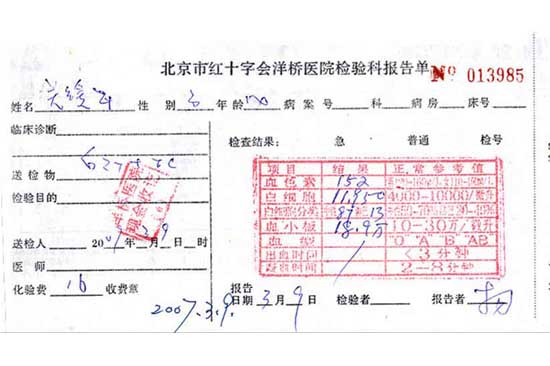 北京市红十字会洋桥医院检验科报告单
№ 013985
姓名 性别 年龄 病案号 科 病房 床号
临床诊断
检查结果: 急 普通 检号
送检物
检验目的
项目 结果 正常参考值
血色素 152
白细胞 11,950 4000-10000/微升
白细胞分类 87 13
血小板 18.9万 10-30万/微升
血型 "O" "A" "B" "AB"
出血时间 <3分钟
凝血时间 2-8分钟
现金收讫
送检人 2007年3月9日 时
医师
化验费 16 收费章
报告日期 3月9日 检验者 报告者
2007.3.9.